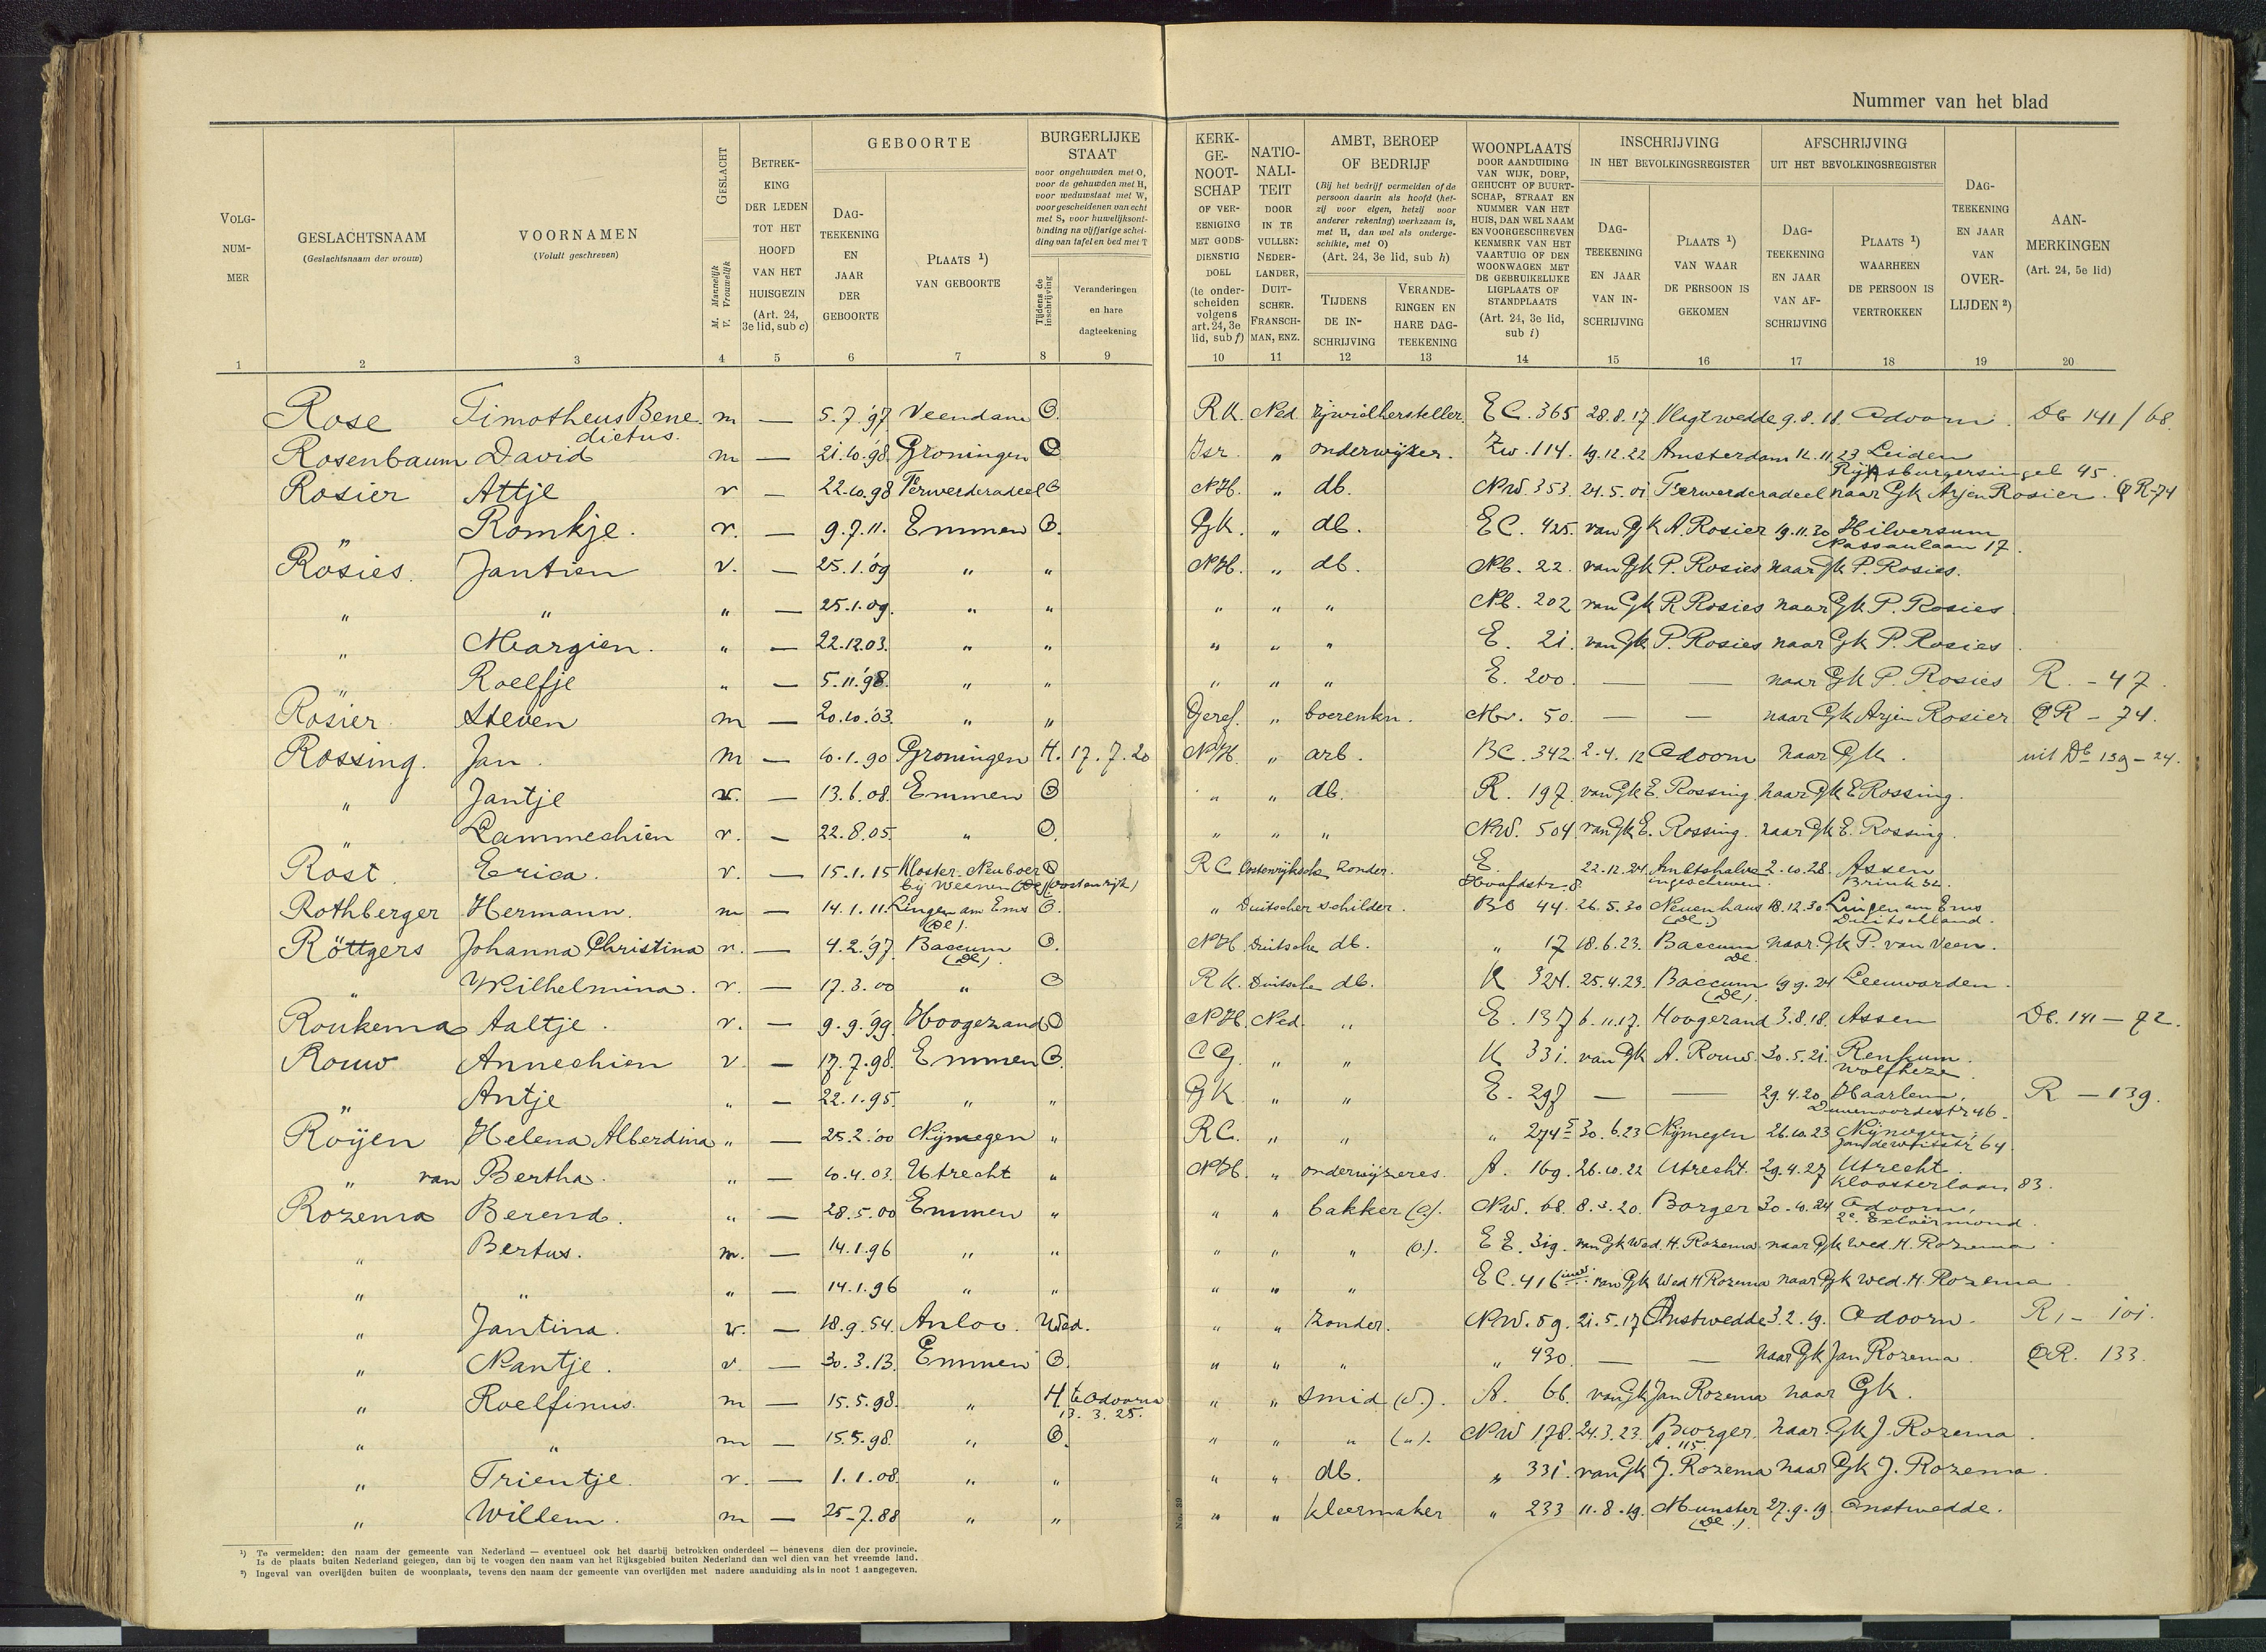 Nummer van het blad
VOLG-NUM-MER 1
GESLACHTSNAAM (Geslachtsnaam der vrouw) 2
VOORNAMEN (Voluit geschreven) 3
GESLACHT M. Mannelijk V. Vrouwelijk 4
BETREK-KING DER LEDEN TOT HET HOOFD VAN HET HUISGEZIN (Art. 24, 3e lid, sub c) 5
GEBOORTE
DAG-TEEKENING EN JAAR DER GEBOORTE 6
PLAATS ¹) VAN GEBOORTE 7
BURGERLIJKE STAAT voor ongehuwden met O, voor de gehuwden met H, voor weduwstaat met W, voor gescheidenen van echt met S, voor huwelijksont-binding na vijfjarige schei-ding van tafel en bed met T
Tijdens de inschrijving 8
Veranderingen en hare dagteekening 9
KERK-GE-NOOT-SCHAP OF VER-EENIGING MET GODS-DIENSTIG DOEL (te onder-scheiden volgens art. 24, 3e lid, sub f) 10
NATIO-NALI-TEIT DOOR IN TE VULLEN: NEDER-LANDER, DUIT-SCHER, FRANSCH-MAN, ENZ. 11
AMBT, BEROEP OF BEDRIJF (Bij het bedrijf vermelden of de persoon daarin als hoofd (het-zij voor eigen, hetzij voor anderer rekening) werkzaam is, met H, dan wel als onderge-schikte, met O) (Art. 24, 3e lid, sub h)
TIJDENS DE IN-SCHRIJVING 12
VERANDE-RINGEN EN HARE DAG-TEEKENING 13
WOONPLAATS DOOR AANDUIDING VAN WIJK, DORP, GEHUCHT OF BUURT-SCHAP, STRAAT EN NUMMER VAN HET HUIS, DAN WEL NAAM EN VOORGESCHREVEN KENMERK VAN HET VAARTUIG OF DEN WOONWAGEN MET DE GEBRUIKELIJKE LIGPLAATS OF STANDPLAATS (Art. 24, 3e lid, sub i) 14
INSCHRIJVING IN HET BEVOLKINGSREGISTER
DAG-TEEKENING EN JAAR VAN IN-SCHRIJVING 15
PLAATS ¹) VAN WAAR DE PERSOON IS GEKOMEN 16
AFSCHRIJVING UIT HET BEVOLKINGSREGISTER
DAG-TEEKENING EN JAAR VAN AF-SCHRIJVING 17
PLAATS ¹) WAARHEEN DE PERSOON IS VERTROKKEN 18
DAG-TEEKENING EN JAAR VAN OVER-LIJDEN ²) 19
AAN-MERKINGEN (Art. 24, 5e lid) 20
Rose Timotheus Bene-dictus. m — 5.7.'97 Veendam O. R.K. Ned. rijwielhersteller. EC. 365 28.8.17 Vlagtwedde 9.8.18. Odoorn. Db 141/68.
Rosenbaum David m — 21.10.'98. Groningen O Isr. " onderwijzer. Zw. 114. 19.12.22 Amsterdam 12.11.23 Leiden Rijnsburgersingel 45.
Rosier Attje v — 22.10.98 Ferwerderadeel O NH. " db. NW. 353. 24.5.01 Ferwerderadeel naar Gk Arjen Rosier. R-74
" Romkje. v. — 9.7.11. Emmen O. GK. " db. EC. 425. van Gk A. Rosier 19.11.30 Hilversum Nassaulaan 17.
Rosies. Jantien v. — 25.1.'09 " " NH. " db. Nb. 22. van Gk P. Rosies naar Gk P. Rosies.
" " " — 25.1.09. " " " " " Nb. 202 van Gk R Rosies naar Gk P. Rosies
" Margien. " — 22.12.03. " " " " " E. 21. van Gk P. Rosies naar Gk P. Rosies.
" Roelfje " — 5.11.'98. " " " " " E. 200. — — naar Gk P. Rosies R. - 47.
Rosier. Steven m — 20.10.'03. " " Geref. " boerenkn. Nbr. 50. — — naar Gk Arjen Rosier R - 74.
Rossing. Jan. m — 10.1.90 Groningen H. 17.7.20 NH. " arb. BC. 342. 2.4.12 Odoorn naar Gk. uit Db 139-24.
" Jantje v. — 13.6.08. Emmen O " " db. R. 197. van Gk E. Rossing. naar Gk E Rossing.
" Lammechien v. — 22.8.05. " O. " " " NW. 504 van Gk E. Rossing. naar Gk E. Rossing.
Rost. Erica. v. — 15.1.15 Kloster-Neuboer bij Weenen (Oostenrijk) O RC Oostenrijksch zonder. E. Hoofdstr. 8. 22.12.24 Ambtshalve ingeschreven. 2.10.28. Assen Brink 32.
Rothberger Hermann. m — 14.1.11. Lingen am Ems (De). O. " Duitscher schilder. BO 44. 26.5.30 Neuenhaus (De.) 18.12.30 Lingen am Ems Duitschland.
Röttgers Johanna Christina v. — 4.2.'97. Baccum (De). O. NH. Duitsche db. " 17 18.6.23. Baccum De. naar Gk P. van Veen.
" Wilhelmina. v. — 17.3.00 " O R.K. Duitsche db. K 324. 25.4.23. Baccum (De). 19.9.24 Leeuwarden.
Roukema Aaltje. v. — 9.9.'99. Hoogezand O NH. Ned. " E. 137 6.11.17. Hoogezand 3.8.18. Assen Db. 141-72.
Rouw Annechien v. — 17.7.98. Emmen O. CG. " " K 331. van Gk A. Rouw. 30.5.21. Renkum. Wolfheze.
" Antje " — 22.1.95. " " GK. " " E. 297 — — 29.4.20. Haarlem, Duvenvoordestr 46. R — 139.
Roÿen Helena Alberdina " — 25.2.'00 Nijmegen " RC. " " " 274 I 30.6.23 Nijmegen 26.10.23 Nijmegen. Jan de Wittstr 64.
" van Bertha. " — 10.4.03. Utrecht " NH. " onderwijzeres. A. 169. 26.10.22 Utrecht. 29.4.27 Utrecht. Kloosterlaan 83.
Rozema Berend. " — 28.5.00 Emmen " " " bakker (O). NW. 68. 8.3.20. Borger 30.10.24 Odoorn, 2e. Exloërmond.
" Bertus. m. — 14.1.96 " " " " " (O). EE. 319. van Gk Wed. H. Rozema naar Gk Wed. H. Rozema.
" " " — 14.1.96 " " " " " EC. 416 van Gk Wed H Rozema naar Gk Wed. H. Rozema.
" Jantina. v. — 18.9.54. Anloo. Wed. " " zonder. NW. 59. 21.5.17 Onstwedde 3.2.19. Odoorn. R, - 101.
" Nantje. v. — 30.3.13. Emmen O. " " " " 430. — — naar Gk Jan Rozema. R. 133.
" Roelfinus. m — 15.5.98. " H te Odoorn 13.3.25. " " smid (O.). A. 66. van Gk Jan Rozema naar Gk.
" " m — 15.5.98. " O. " " " ("). NW 178. 24.3.23. Borger. A. 115. naar Gk J. Rozema.
" Trientje. v. — 1.1.08. " " " " db. " 331. van Gk J. Rozema naar Gk J. Rozema.
" Willem. m — 25-7.88 " " " " kleermaker " 233 11.8.19. Munster (De.) 27.9.19 Onstwedde.
No. 29
¹) Te vermelden: den naam der gemeente van Nederland — eventueel ook het daarbij betrokken onderdeel — benevens dien der provincie.
Is de plaats buiten Nederland gelegen, dan bij te voegen den naam van het Rijksgebied buiten Nederland dan wel dien van het vreemde land.
²) Ingeval van overlijden buiten de woonplaats, tevens den naam der gemeente van overlijden met nadere aanduiding als in noot 1 aangegeven.